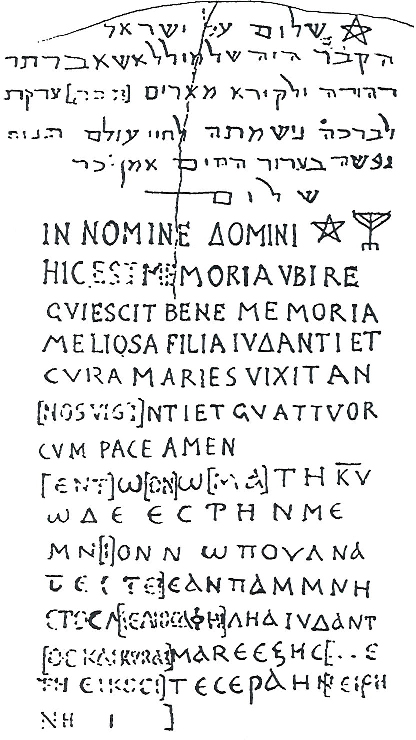 שלום על ישראל
הקבר הזה של מלוללאשא ברת ר
יהודה ולקירא מארים צדקת
לברכה נישמתה לחיי עולם תנוח
נפשה בצרור החיים אמן
שלום
IN NOMINE ΔOMINI
HIC EST MEMORIA VBI RE
QVIESCIT BENE MEMORIA
MELIOSA FILIA IVΔANTI ET
CVIRA MARIES VIXIT AN
[NOS VIGI]NTI ET QVATTVOR
CVM PACE AMEN
[ΕΝ Τ]Ω [ΟΝ]Ω[ΜΑ]ΤΗ ΚΥ
ΩΔΕ ΕСΤΗΝ ΜΕ
ΜΝ[Ι]ΟΝ Ν ΩΠΟΥ ΑΝΑ
ΠΑΜΜΝΗ
ΛΗΑ ΙVΔΑΝΤ
[ΟС ΚΑΙ ΚVΡΑС] ΜΑRΕΕС
ΤΗ ΕΙΚΟСΙ] ΤΕСΕΡΑ ΗΝ ΕΙΡΗ
ΝΗ